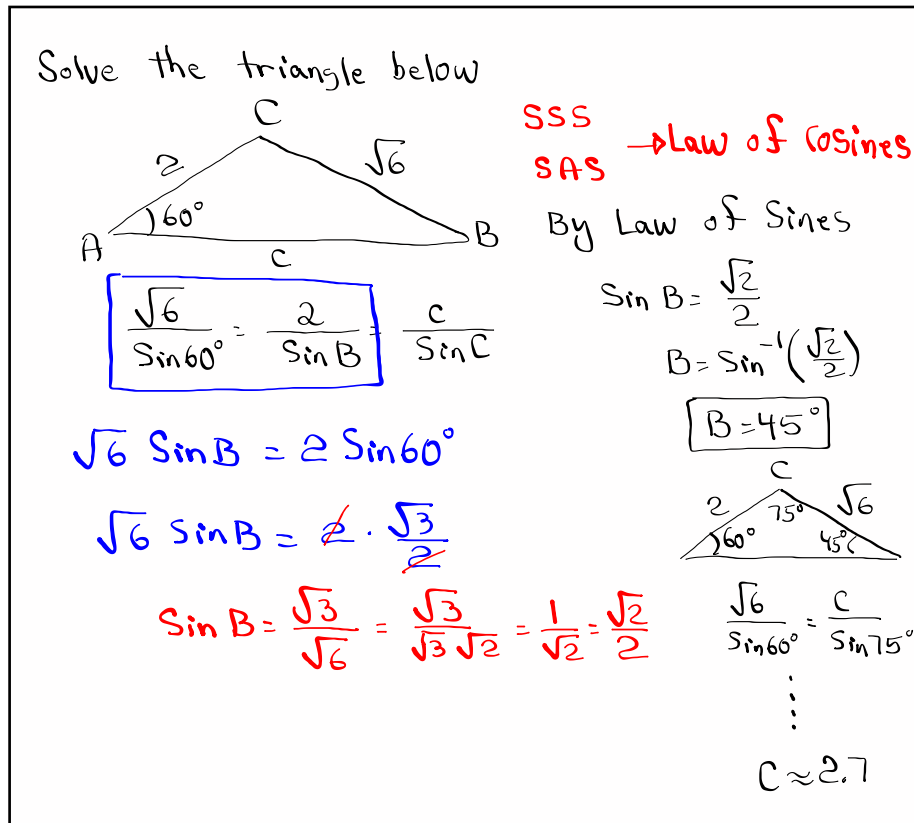 Solve the triangle below
C
2
√6
60°
A
B
c
SSS
SAS → Law of Cosines
By Law of Sines
√6/Sin60° = 2/SinB = c/SinC
√6 SinB = 2 Sin60°
√6 SinB = 2 · √3/2
Sin B = √3/√6 = √3/√3√2 = 1/√2 = √2/2
Sin B = √2/2
B = Sin⁻¹(√2/2)
B = 45°
C
2
75°
√6
60°
45°
√6/Sin60° = C/Sin75°
⋮
C ≈ 2.7